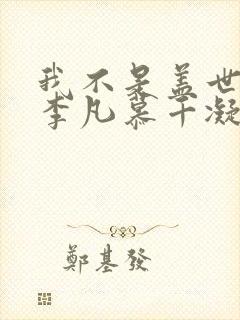 我不是盖世
李凡慕千凝
鄭基發